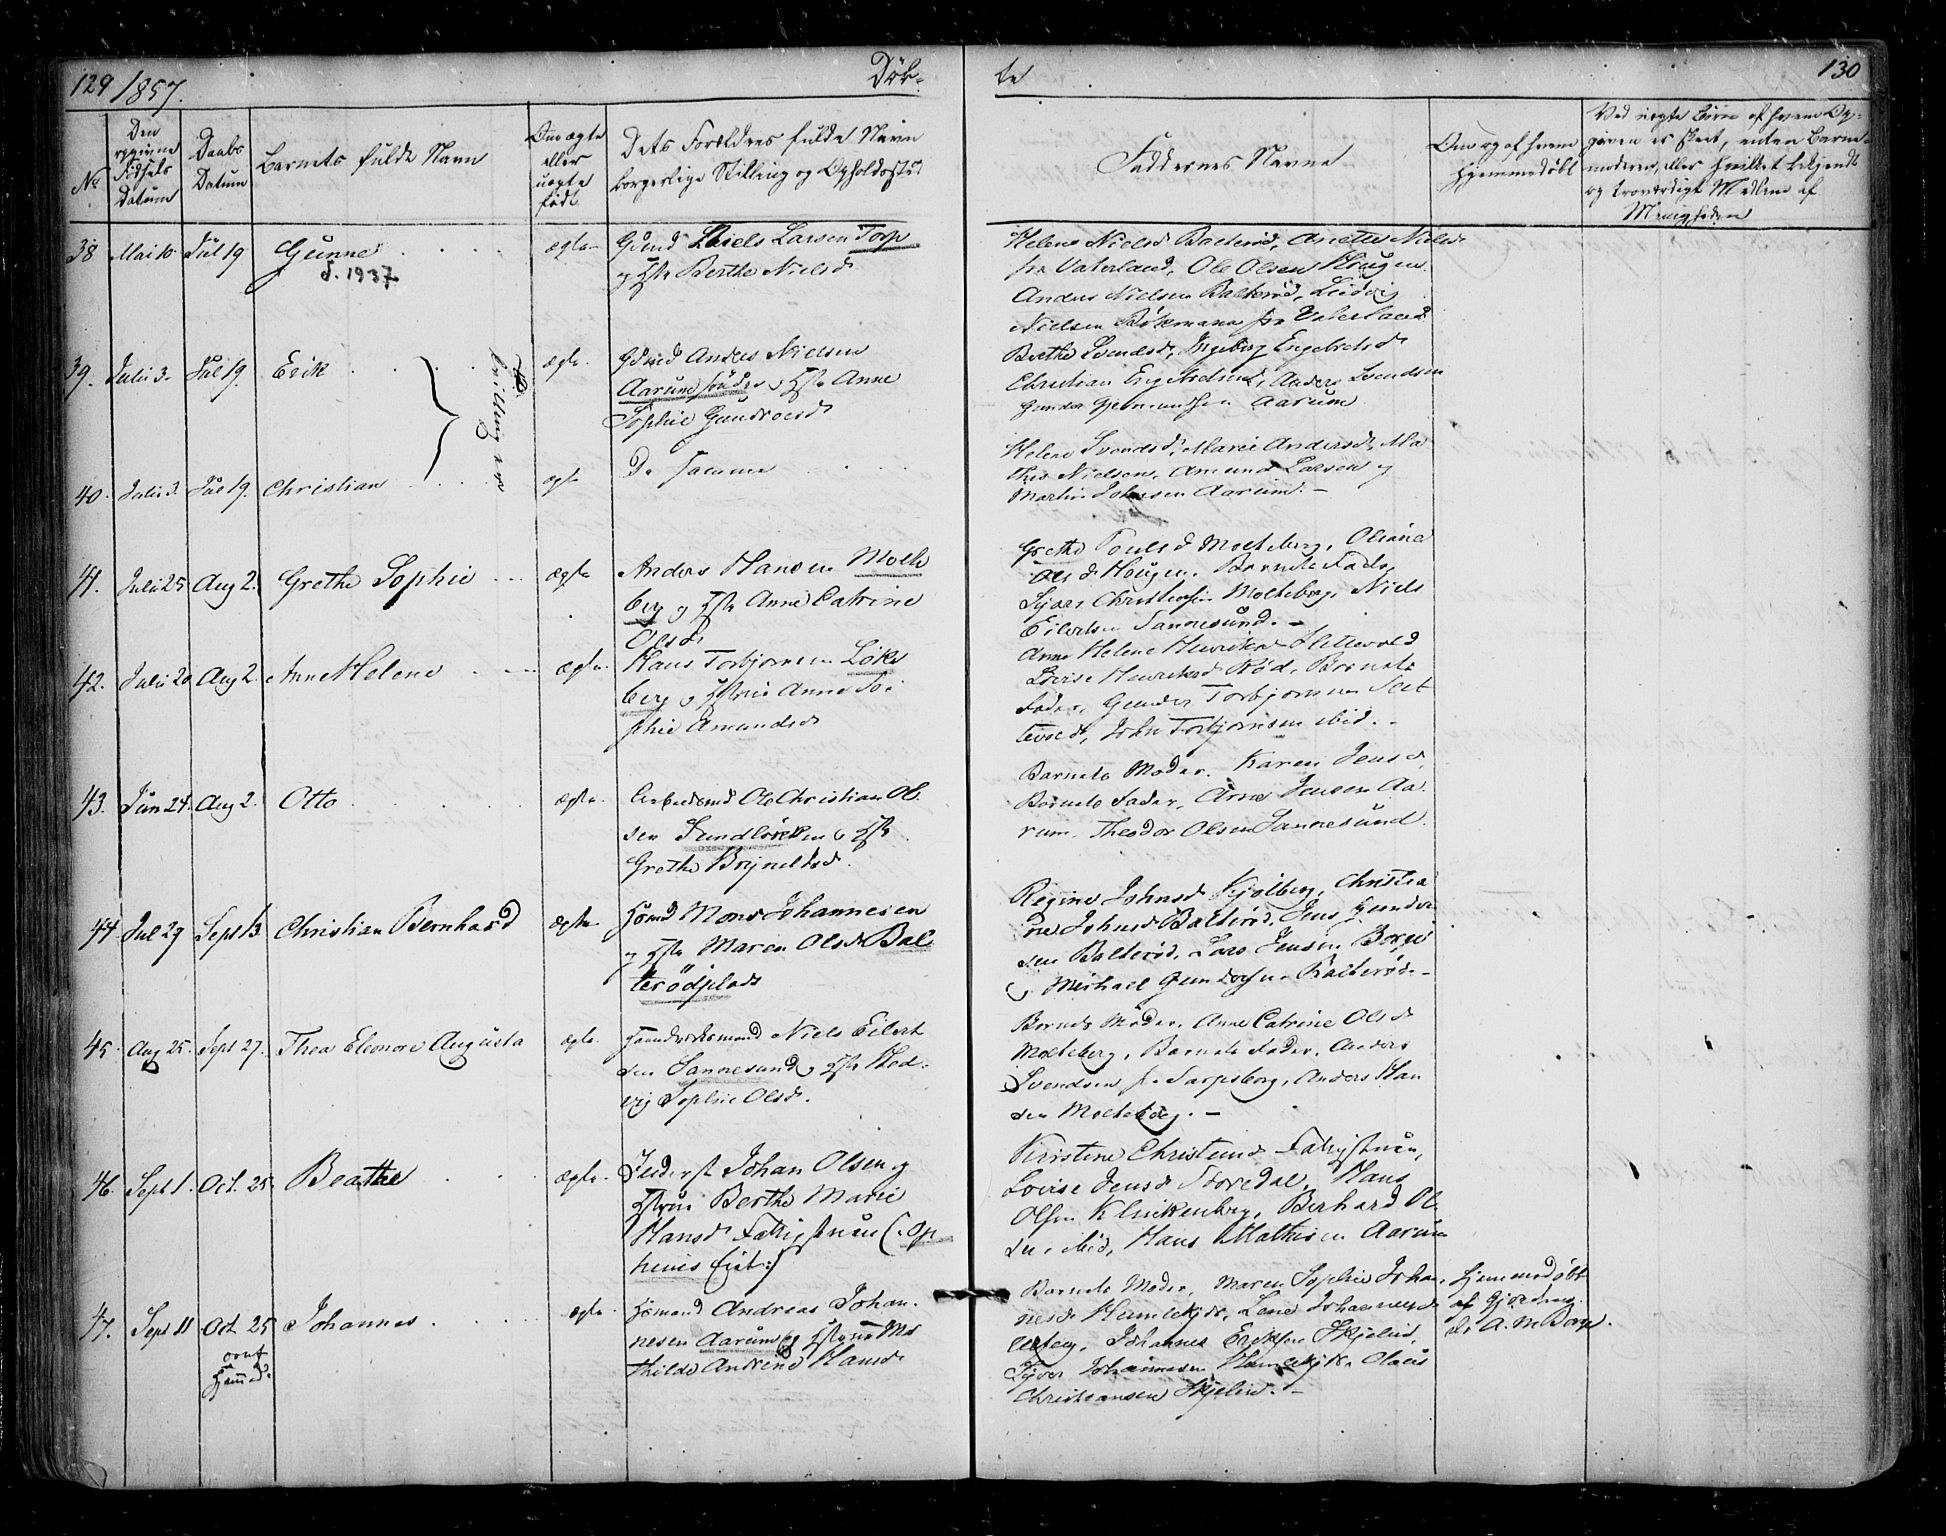 129 1857.
Døb-
te
130
No
Den
opgivne
Fødsels
Datum
Daabs
Datum
Barnets fulde Navn
Om ægte
eller
uægte
født.
Dets Forældres fulde Navn
borgerlige Stilling og Opholdssted
Faddernes Navne
Om og af hvem
hjemmedøbt
Ved uægte Børn af hvem Op-
given er skeet, enten Barne-
moderen, eller hvilket bekjendt
og troværdigt Medlem af
Menigheden
38 Mai 10 Jul 19 Gunne ægte Niels Larsen Torp
d. 1937
og Hstr Berthe Nielsd
Helene Nielsd Balterød, Nielsd
fra Vaterland, Ole Olsen Hougen
Anders Nielsen Balterød, Ludvig
Nielsen fra Vaterland
39. Julii 3. Jul 19. Erik ægte Gdmd Anders Nielsen
Aarum søndre og Hstr Anne
Sophie Gundersd
Tvillinger
Berthe Svendsd, Ingeborg Engebretsd
Christian Engebretsen, Anders Svendsen
Gunder Aarum
40. Julii 3. Jul 19. Christian ægte De samme
Helene Svendsd, Marie Andersd, Ma
this Nielsen, Amund Larsen og
Martin Johnsen Aarum. -
41. Julii 25 Aug 2. Grethe Sophie ægte Anders Hansen Molte
berg og Hstr Anne Catrine
Olsd
Grethe Poulsd Molteberg, Oliane
Olsd Hougen. Barnets Fader
Christensen Molteberg, Niels
Eilertsen Sannesund. -
42. Julii 20 Aug 2. Anne Helene ægte Hans Torbjørnsen Løke
berg og Hstru Anne So-
phie Amundsd
Anne Helene Henriksd Slettevold
Lovise Henriksd Rød, Barnets
Fader, Gunder Torbjørnsen Slet
tevold, John Torbjørnsen ibid. -
43. Jun 24. Aug 2. Otto ægte. Arbeidsmd Ole Christian Ol
sen Sundløkken og Hstr
Grethe Brynildsd.
Barnets Moder. Karen Jensd,
Barnets Fader, Arne Jensen Aa
rum. Theodor Olsen Sannesund.
44 Jul 29 Sept 13. Christian Bernhard ægte Hsmd Mons Johannesen
og Hstr Maren Olsd Bal
terødplads
Regine Johnsd Kjølberg, Christia
ne Johnsd Balterød, Jens Gunder
sen Balterød, Lars Jensen Borge
og Michael Gundersen Balterød. -
45. Aug 25. Sept 27. Thea Eleonore Augusta ægte. Haandværksmand Niels Eilert
sen Sannesund og Hstr Hed-
vig Sophie Olsd.
Barnets Moder, Anne Catrine Olsd
Molteberg, Barnets Fader, Anders
Svendsen fr Sarpsborg, Anders Han
sen Molteberg. -
46. Sept 1. Oct. 25. Beathe ægte. Inderst Johan Olsen og
Hstru Berthe Marie
Hansd
Kirstine Christensd
Lovise Jensd Toredal, Hans
Olsen Klinkenberg, Berhard Ol
sen ibid, Hans Mathisen Aarum
47. Sept 11 Oct 25 Johannes ægte Hsmand Andreas Johan-
conf
Hjemmed.
nesen Aarum og Hstru Ma
thilde Andrine Hansd
Barnets Moder, Maren Sophie Johan-
nesd Lene Johannesd
Johannes Eriksen Skjelin,
Johannesen Olaus
Christiansen Skjelin. -
hjemmedøbt
af
A. M. Borge.